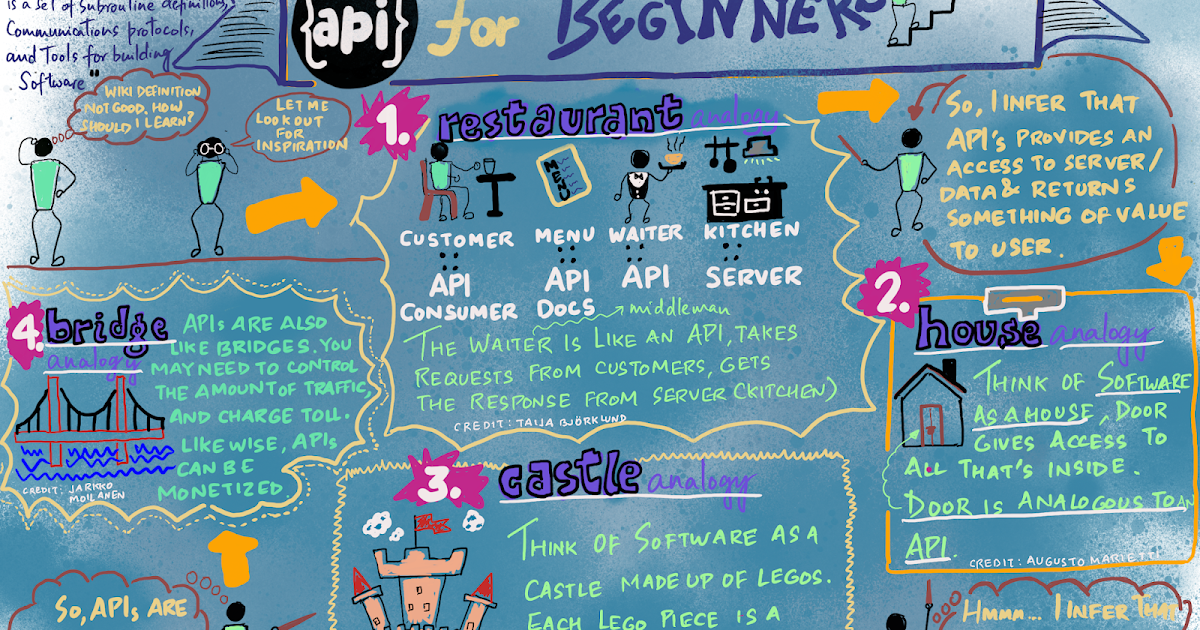 is a set of subroutine definitions,
Communications protocols,
and Tools for building
Software"
{api} for BEGINNERS
WIKI DEFINITION
NOT GOOD. HOW
SHOULD I LEARN?
LET ME
LOOK OUT
FOR
INSPIRATION
1. restaurant analogy
MENU
CUSTOMER MENU WAITER KITCHEN
API API API SERVER
CONSUMER DOCS middleman
THE WAITER IS LIKE AN API, TAKES
REQUESTS FROM CUSTOMERS, GETS
THE RESPONSE FROM SERVER (KITCHEN)
CREDIT: TAIJA BJÖRKLUND
SO, I INFER THAT
API's PROVIDES AN
ACCESS TO SERVER/
DATA & RETURNS
SOMETHING OF VALUE
TO USER.
2. house analogy
THINK OF SOFTWARE
AS A HOUSE, DOOR
GIVES ACCESS TO
ALL THAT'S INSIDE.
DOOR IS ANALOGOUS TO AN
API.
CREDIT: AUGUSTO MARIETTI
3. castle analogy
THINK OF SOFTWARE AS A
CASTLE MADE UP OF LEGOS.
EACH LEGO PIECE IS A
4. bridge analogy
APIs ARE ALSO
LIKE BRIDGES. YOU
MAY NEED TO CONTROL
THE AMOUNT OF TRAFFIC,
AND CHARGE TOLL.
LIKE WISE, APIs
CAN BE
MONETIZED
CREDIT: JARKKO
MOILANEN
SO, APIs ARE
HMMM... I INFER THAT